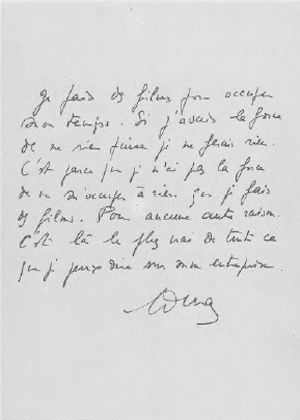 Je fais des films pour occuper
mon temps. Si j'avais la force
de ne rien faire je ne ferais rien.
C'est parce que je n'ai pas la force
de ne m'occuper à rien que je fais
des films. Pour aucune autre raison.
C'est là le plus vrai de tout ce
que je peux dire sur mon entreprise.